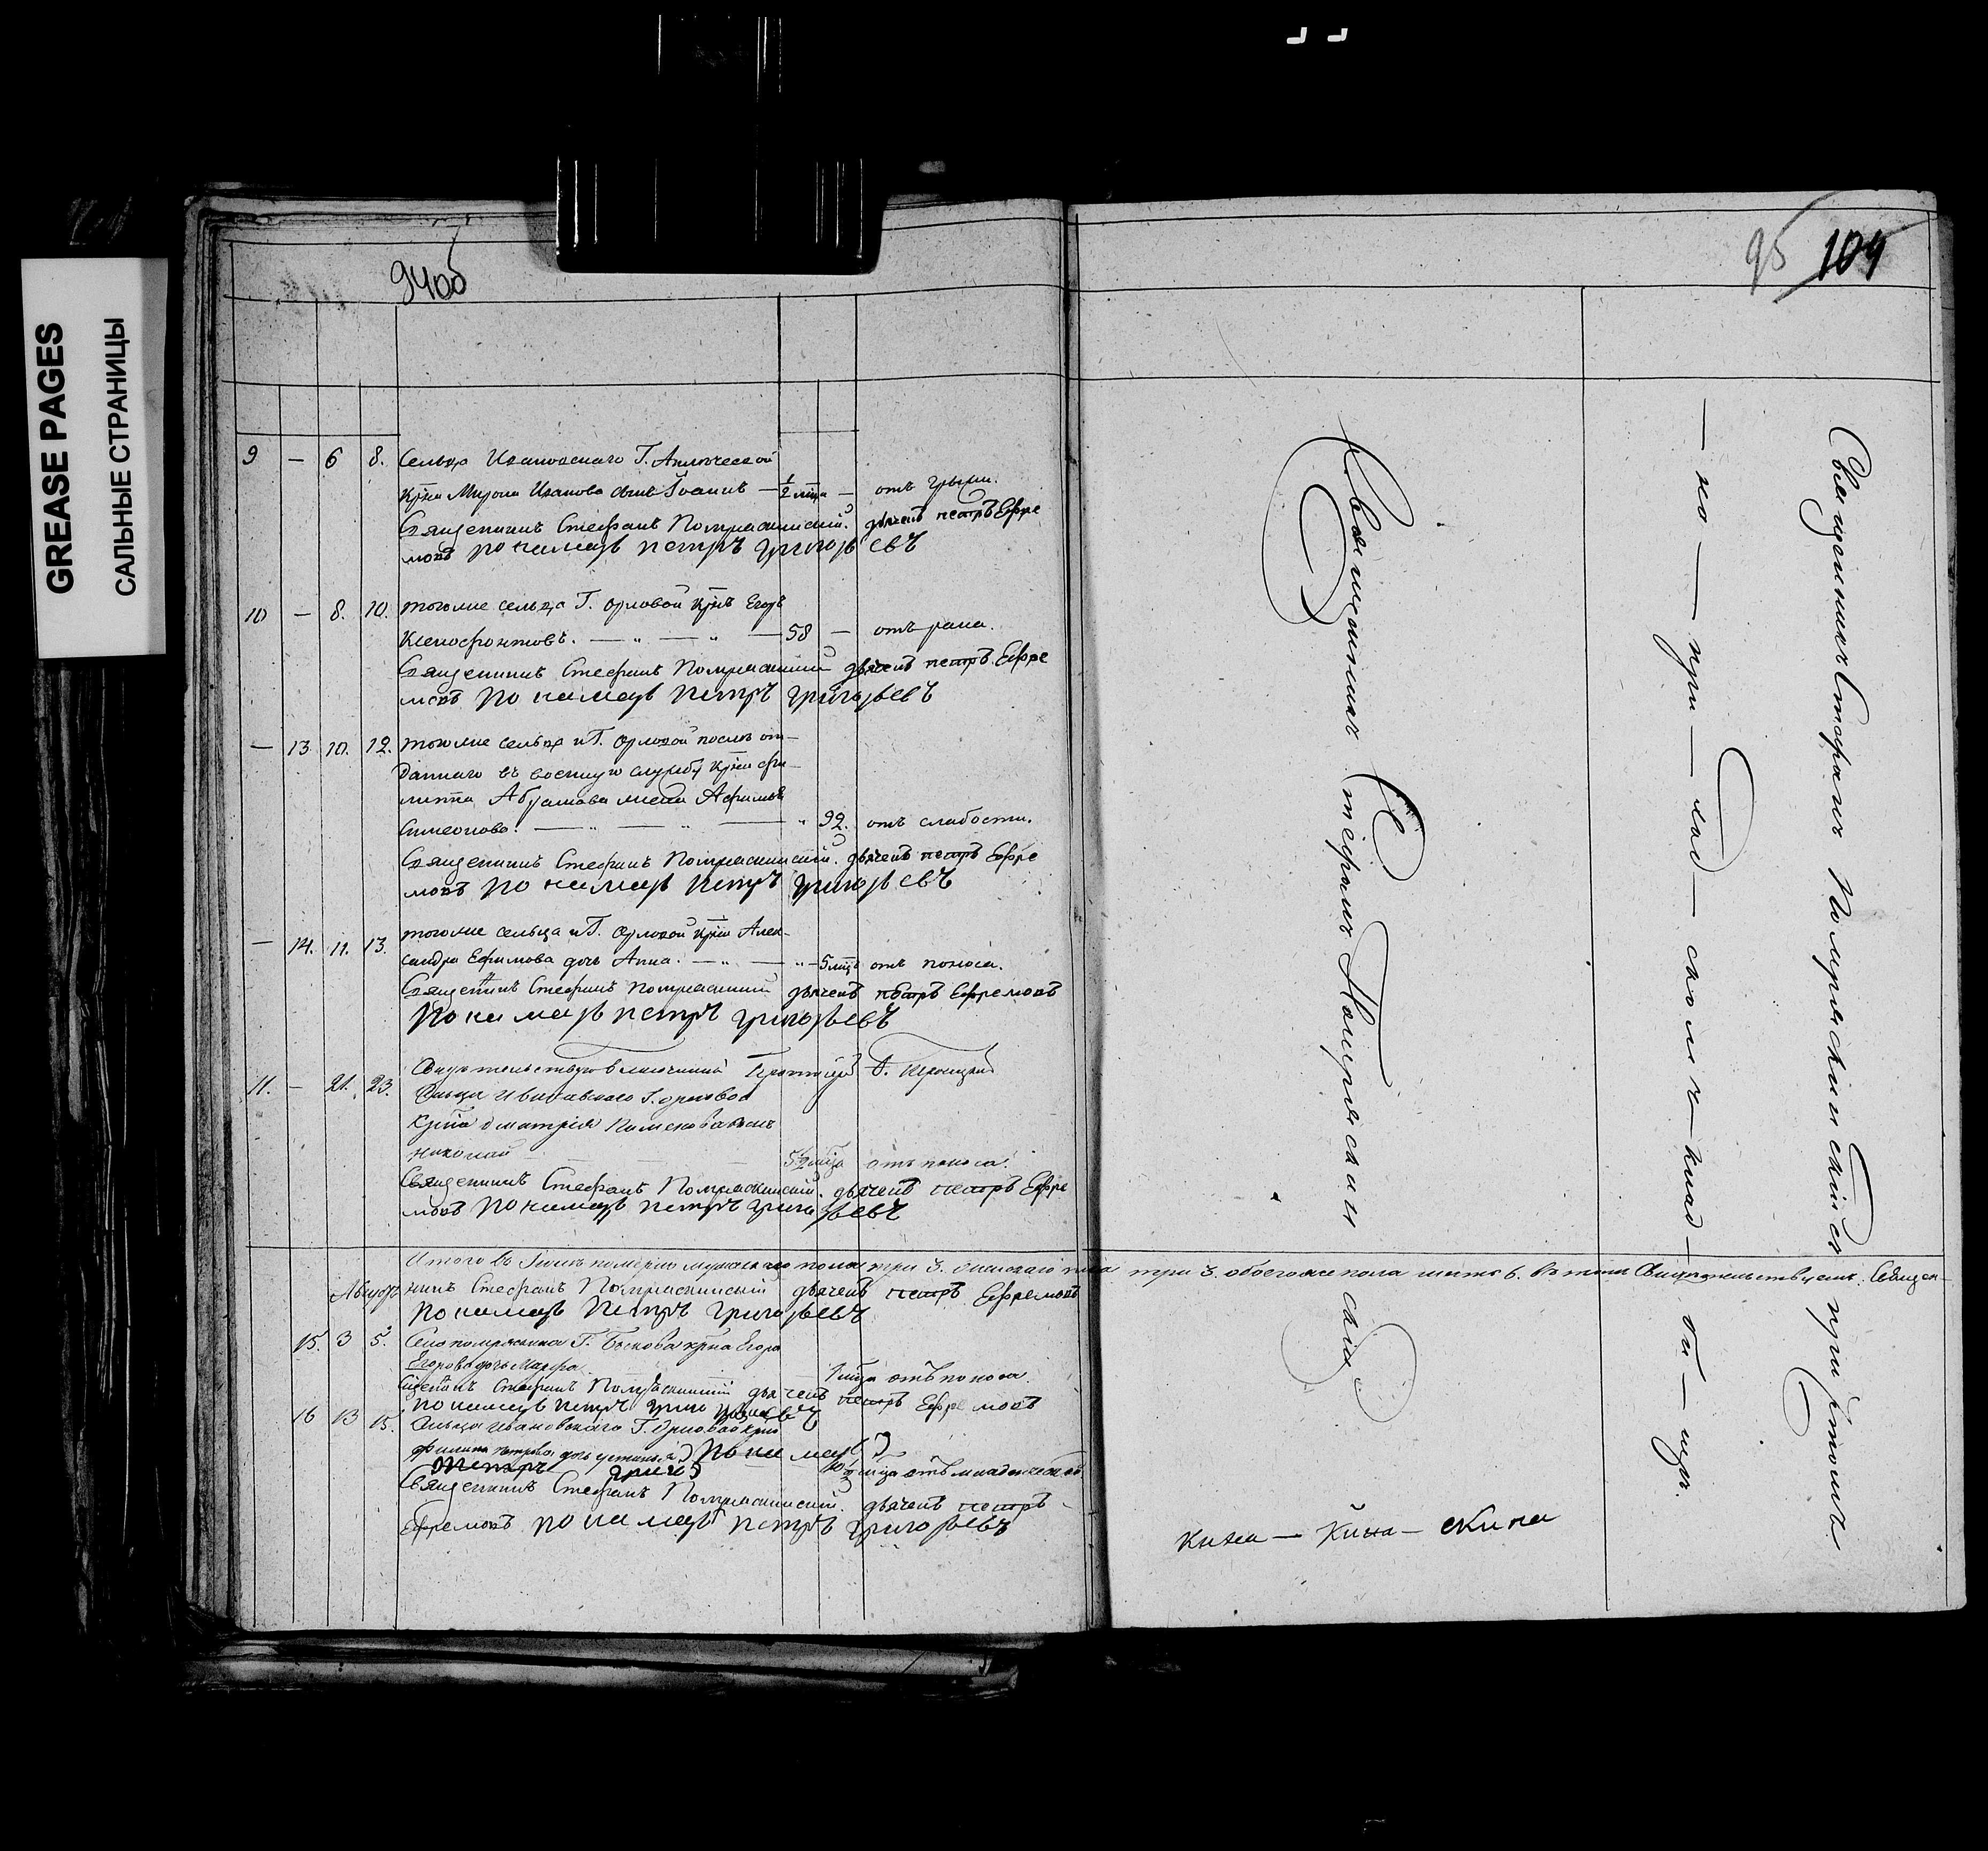 GREASE PAGES
САЛЬНЫЕ СТРАНИЦЫ
94об
9 — 6 8. Сельца Ивановскаго Г.
Крна Мирона Иванова сынъ Іоаннъ — 1/2 мца — отъ грыжи.
Священникъ Стефанъ Помряскинскій. дьячекъ петръ Ефре
мовъ пономарь петръ григорьевъ
10 — 8. 10. тогоже сельца Г. Орловой крнъ Егоръ
Ксенофонтовъ. — " — " — 58 — отъ рака.
Священникъ Стефанъ Помряскинскій дьячекъ петръ Ефре
мовъ пономарь петръ григорьевъ
— 13 10. 12. тогоже сельца и Г. Орловой послѣ от-
даннаго въ военную службу крна фи-
липпа Абрамова жена Афимья
Симеонова. — " — " — " 92. отъ слабости.
Священникъ Стефанъ Помряскинскій. дьячекъ петръ Ефре
мовъ пономарь петръ григорьевъ
— 14. 11. 13. тогоже сельца и Г. Орловой крна Алек-
сандра Ефимова дочь Анна. — " — " — 5 мцъ отъ поноса.
Священникъ Стефанъ Помряскинскій дьячекъ петръ Ефремовъ
Пономарь петръ григорьевъ
Свидѣтельствовалъ Благочинный Протоіерей Троицкій
11. — 21. 23. Сельца Ивановскаго Г. Орловой
Крна Дмитрія сынъ
Николай — 5 1/2 мца отъ поноса.
Священникъ Стефанъ Помряскинскій. дьячекъ петръ Ефре
мовъ пономарь петръ григорьевъ
Итого въ Іюлѣ померло мужскаго пола три 3. женскаго пола три 3. обоегоже пола шесть 6. въ томъ Свидѣтельствуемъ. Священ-
Августъ
никъ Стефанъ Помряскинскій дьячекъ петръ Ефремовъ
пономарь петръ григорьевъ
15. 3 5. Села помряскина Г. крна Егора
Егорова дочь Марфа. 1 мца отъ поноса.
Стефанъ Помряскинскій дьячекъ петръ Ефремовъ
пономарь петръ
16 13 15. Сельца Ивановскаго Г. Орловой крна
филипа петрова дочь устинья пономарь
петръ григ мца отъ младенческой.
Священникъ Стефанъ Помряскинскій. дьячекъ петръ
Ефремовъ пономарь петръ григорьевъ
95 104
Священникъ Стефанъ Помряскинскій при
— но — при — лод — сколь — клад — би — щѣ.
Священникъ Стефанъ Помряскинскій
кина — Кина — скина